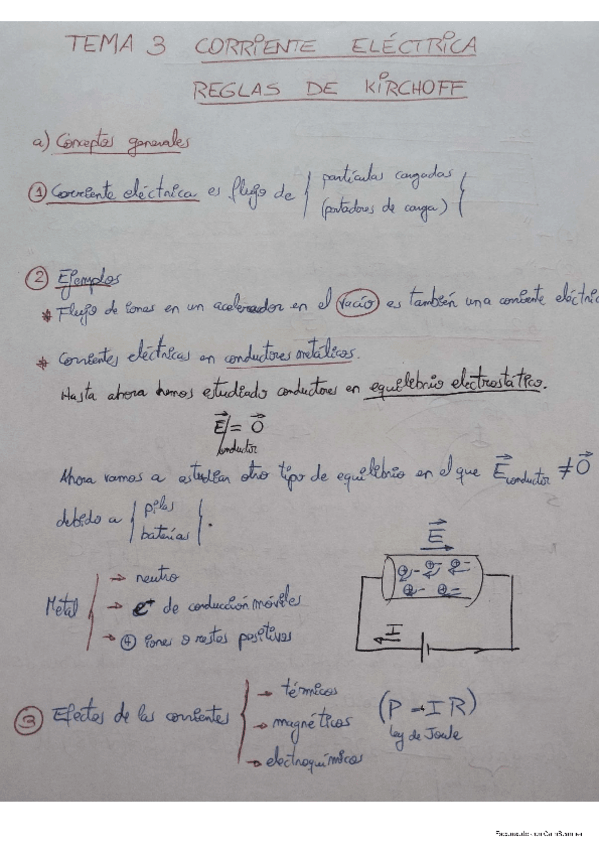 TEMA 3 CORRIENTE ELÉCTRICA
REGLAS DE KIRCHOFF
a) Conceptos generales
① Corriente eléctrica es flujo de { partículas cargadas
(portadores de carga) {
② Ejemplos
* Flujo de iones en un acelerador en el vacío es también una corriente eléctric
* Corrientes eléctricas en conductores metálicos.
Hasta ahora hemos estudiado conductores en equilibrio electrostático.
E⃗ = 0⃗
conductor
Ahora vamos a estudiar otro tipo de equilibrio en el que E⃗conductor ≠ 0⃗
debido a { pilas
baterías } .
E⃗
Metal { → neutro
→ e⁺ de conducción móviles
→ ⊕ iones o restos positivos
I
③ Efectos de las corrientes { → térmicos
→ magnéticos
→ electroquímicos
(P = I R)
Ley de Joule